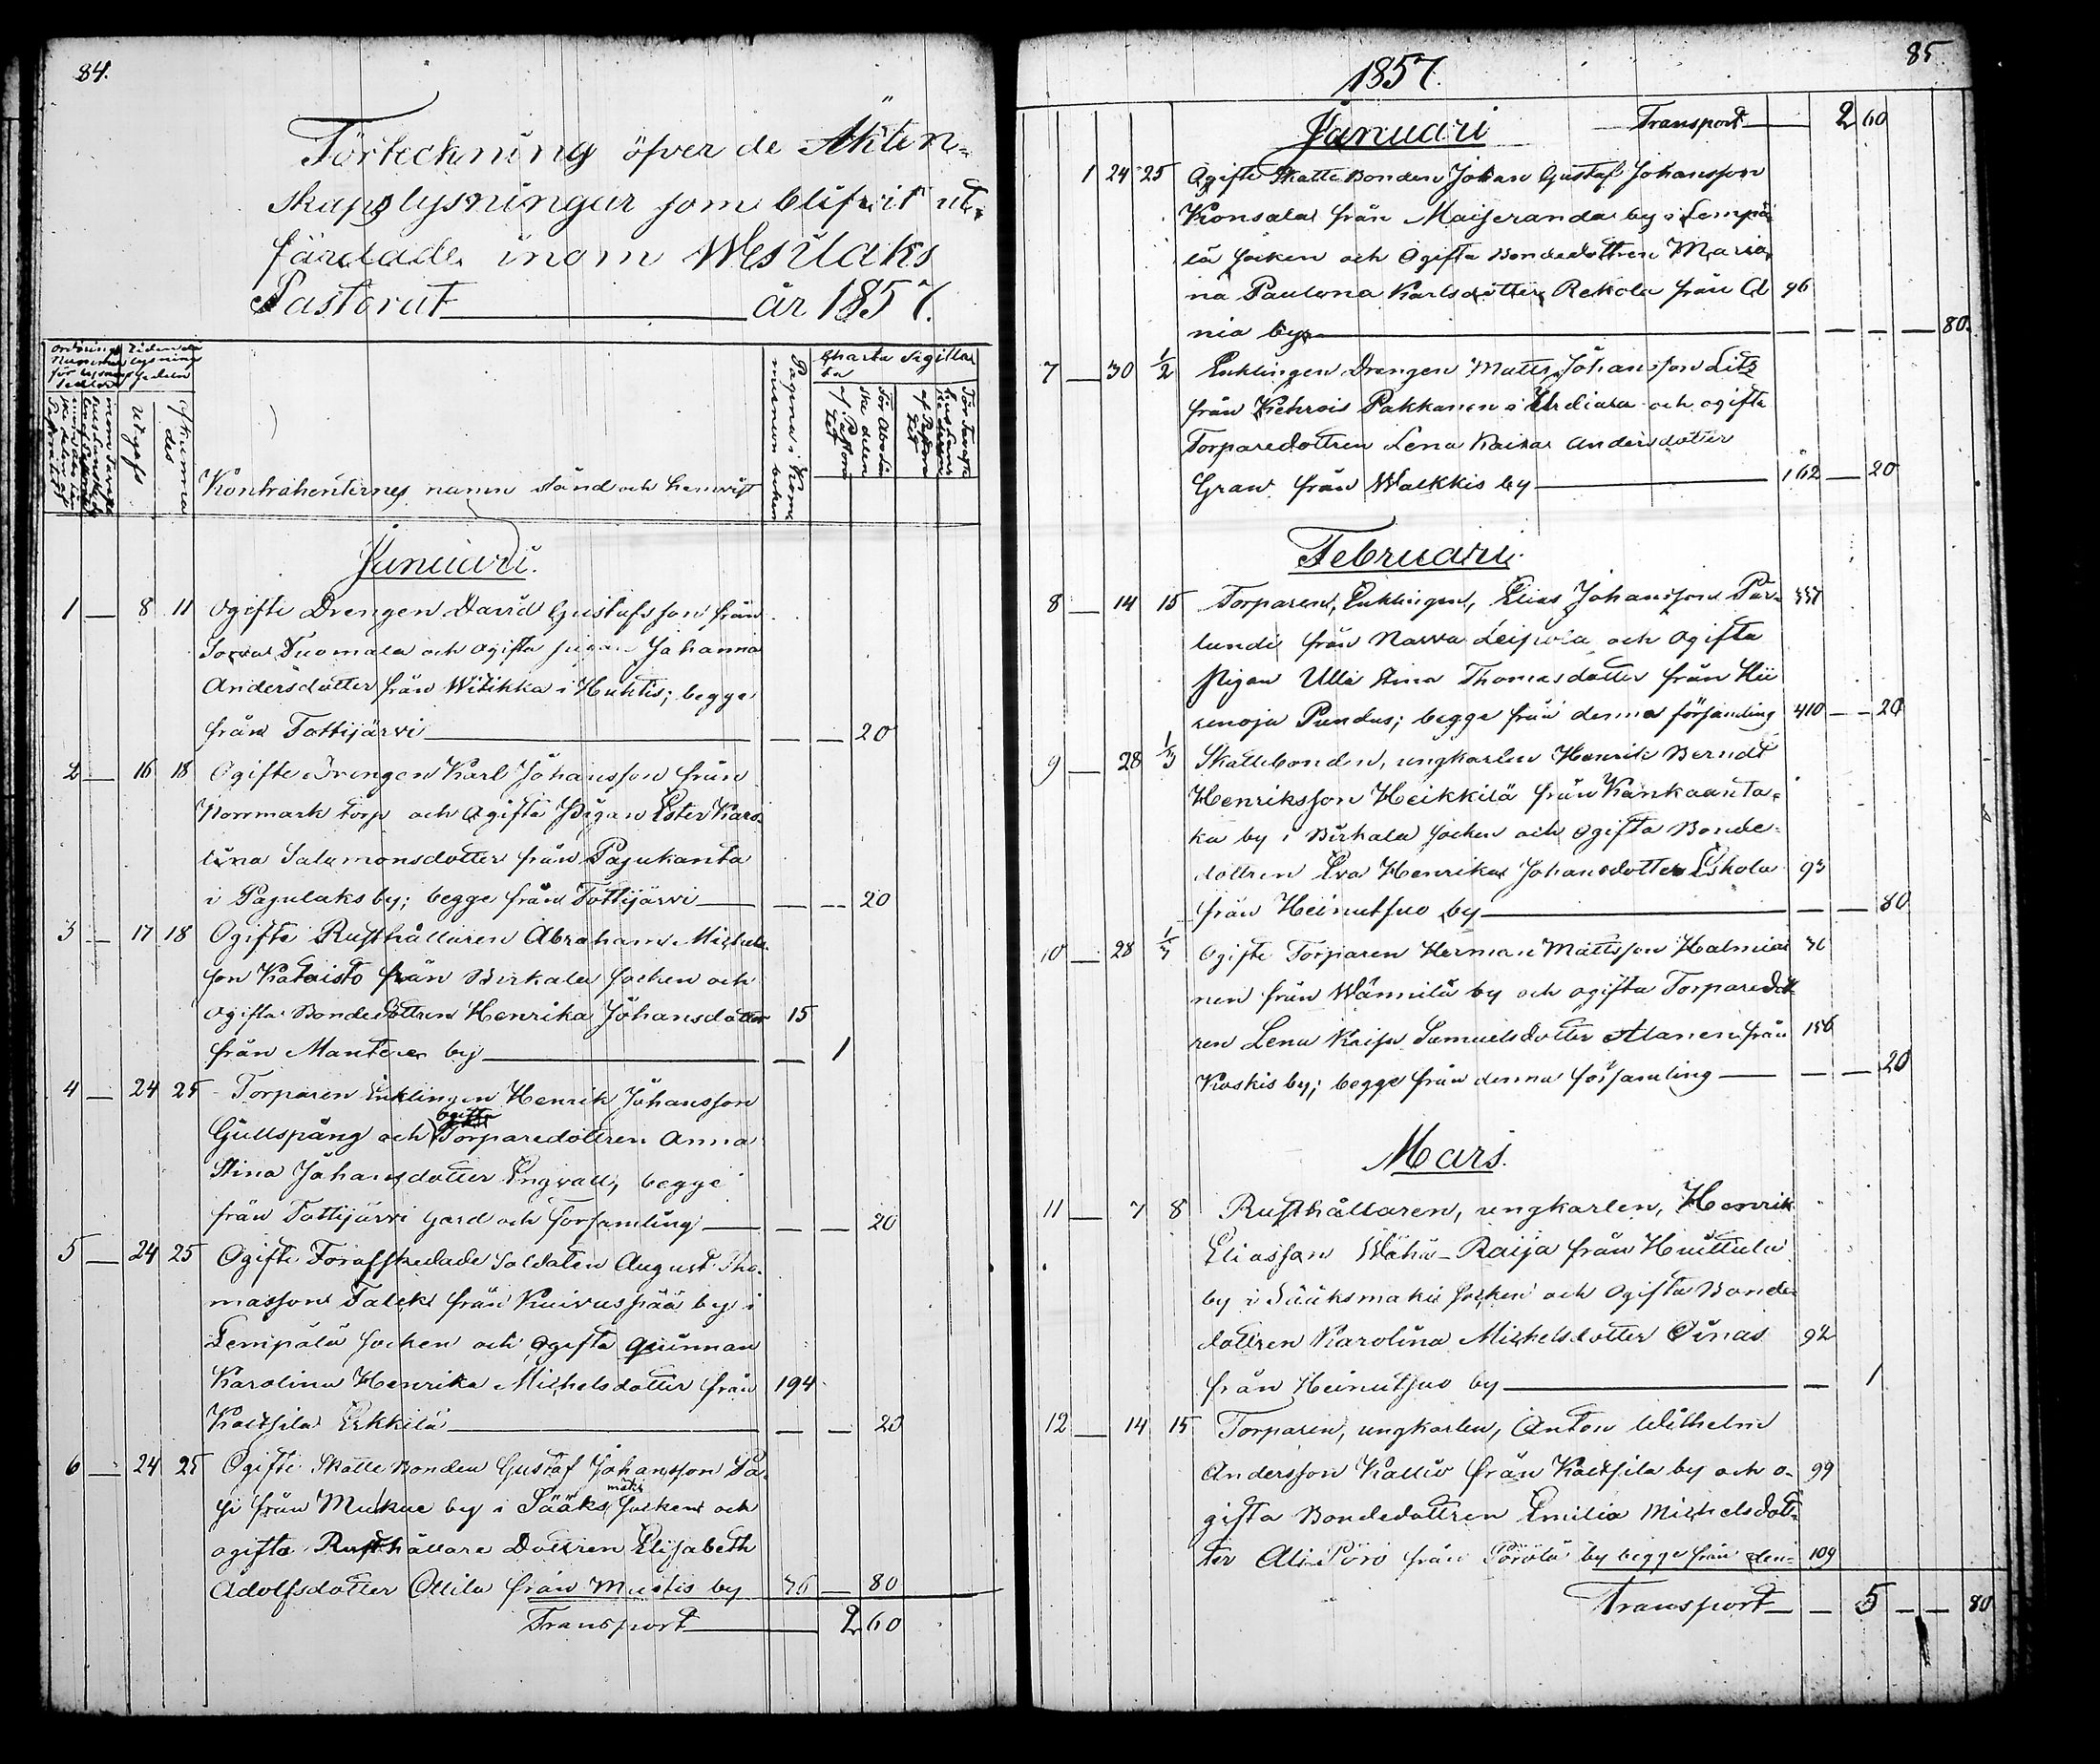 84.
Förteckning öfver de Äkten-
skapslysningar som blifvit ut-
färdade inom Wesilaks
Pastorat år 1857.
Charta Sigillata
Utgifs
Kontrahenternes namn stånd och hemvist
Januari.
1 — 8 11 Ogifte Drengen David Gustafsson från
Sorva Tuomala och ogifta pigan Johanna
Andersdotter från Witikka i Huhtis; begge
från Tottijärvi — — 20
2 — 16 18 Ogifte Drengen Karl Johansson från
Norrmark torp och ogifta Pigan Ester Karo-
lina Salamonsdotter från Pajukanta
i Pajulaks by; begge från Tottijärvi — — 20
3 — 17 18 Ogifte Rusthållaren Abraham Michels-
son Kataisto från Birkala socken och
ogifta Bondedottren Henrika Johansdotter 15
från Mantere by — 1
4 — 24 25 Torparen Enklingen Henrik Johansson
Gullspång och Torparedottren Anna
Stina Johansdotter Engvall, begge
från Tottijärvi Gård och församling — — 20
5 — 24 25 Ogifte Förafskedade Soldaten August Tho-
masson Falck från Kuivaspää by i
Lempälä socken och ogifta qvinnan
Karolina Henrika Michelsdotter från 194
Kaltsila Erkkilä — — 20
6 — 24 25 Ogifte Skatte Bonden Gustaf Johansson Pa-
si från Mukue by i Sääksmäki socken och
ogifta Rusthållare Dottren Elisabeth
Adolfsdotter Ollila från Mustis by 76 — 80
Transport 2 60
85
1857.
Januari Transport 2 60
1 24 25 Ogifte Skatte Bonden Johan Gustaf Johansson
Konsala från Maijeranda by i Lempä-
lä socken och Ogifta Bondedottren Maria-
na Paulona Karlsdotter Rekola från A 96
nia by — — — 80
7 — 30 1/2 Enklingen Drengen Matts Johansson Litz
från Kehrois Pakkanen i Urdiala och ogifta
Torparedottren Lena Kaisa Andersdotter
Gran från Walkkis by 162 — 20
Februari
8 — 14 15 Torparen, Enklingen, Elias Johansson Par- 337
lundi från Narva Leipola och ogifta
Pigan Ulla Stina Thomasdotter från Hii
renoja Pundus; begge från denna församling 410 — — 20
9 — 28 1/3 Skattebonden, ungkarlen Henrik Berndt
Henriksson Heikkilä från Kankaanta-
ka by i Birkala socken och ogifta Bonde-
dottren Eva Henrika Johansdotter Eskola 93
från Heinutsuo by — — 80
10 — 28 1/3 Ogifte Torparen Herman Mattsson Halmia 36
nen från Wännilä by och ogifta Torparedott-
ren Lena Kaisa Samuelsdotter Alanen från 156
Koskis by; begge från denna församling — — 20
Mars.
11 — 7 8 Rusthållaren, ungkarlen, Henrik
Eliasson Wähä-Raija från Huittula
by i Sääksmäki socken och ogifta Bonde
dottren Karolina Michelsdotter Oinas 92
från Heinutsuo by — 1
12 — 14 15 Torparen, ungkarlen, Anton Wilhelm
Andersson Kallio från Kaltsila by och o- 99
gifta Bondedottren Emilia Michelsdott-
ter Ali Pörö från Pörölä by begge från den- 109
Transport — — 5 — — 80